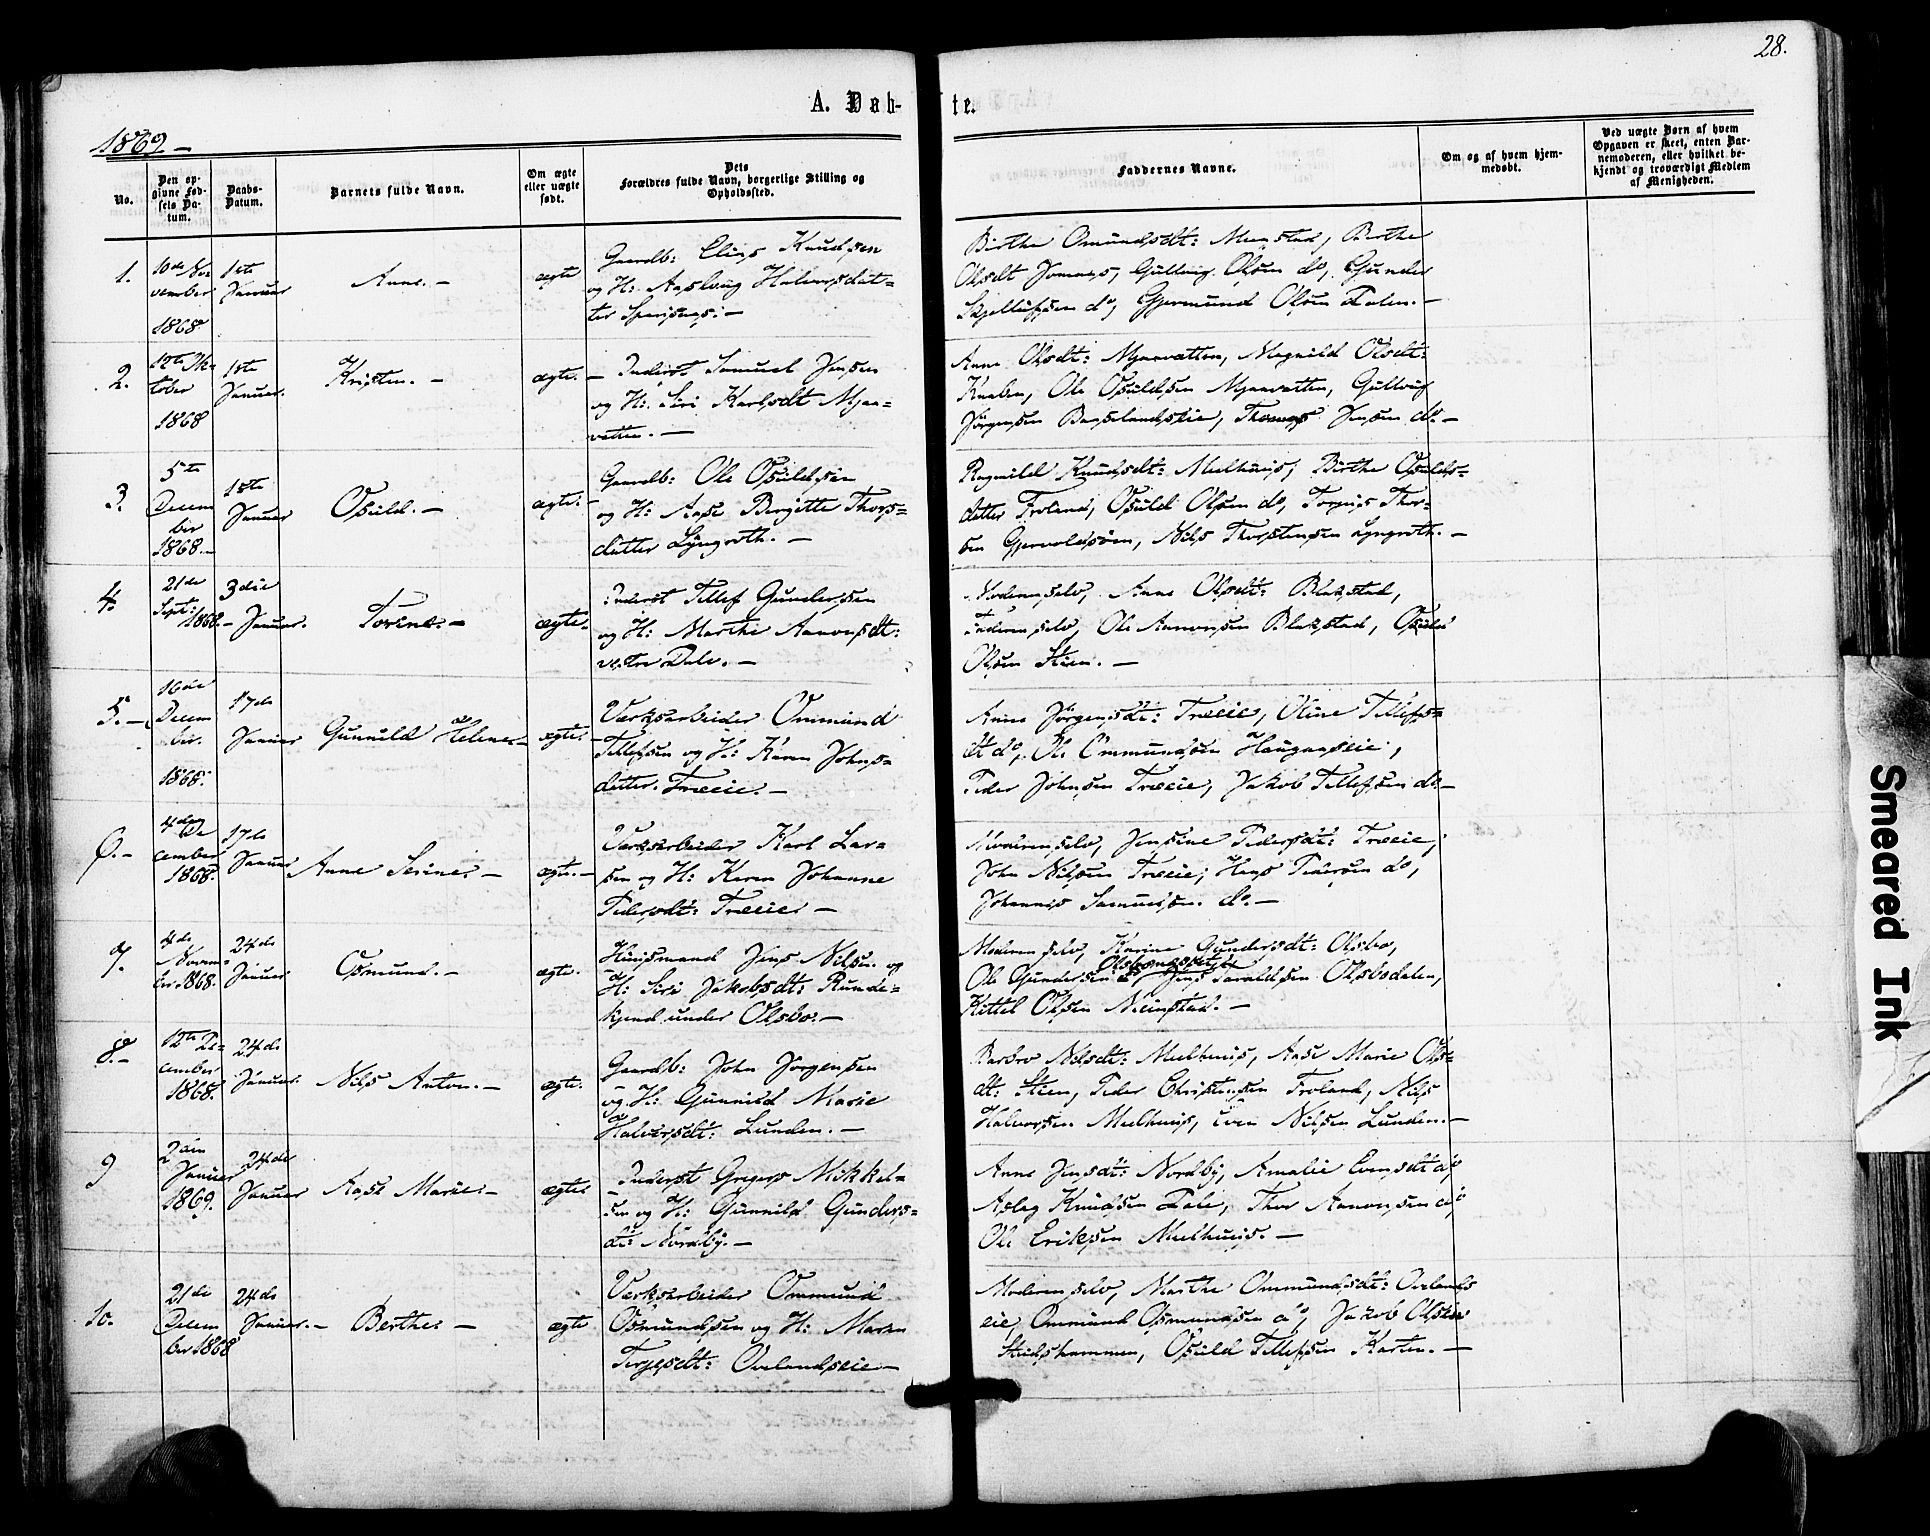 28.
A. Døb-
te.
1869 -
No.
Den op-
givne Fød-
sels Da-
tum.
Daabs-
Datum.
Barnets fulde Navn.
Om ægte
eller uægte
født.
Dets
Forældres fulde Navn, borgerlige Stilling og
Opholdssted.
Faddernes Navne.
Om og af hvem hjem-
medøbt.
Ved uægte Børn af hvem
Opgaven er skeet, enten Bar-
nemoderen, eller hvilket be-
kjendt og troværdigt Medlem
af Menigheden.
1.
10de No-
vember
1868
1ste
Januar
Anne. -
ægte
Gaardb: Elias Knudsen
og H: Aaslaug Halvorsdat-
ter
Birthe Omundsdt: Birthe
Olsdt Gulleug Olsen do, Gunder
do, Gjermund Olsen Dalen. -
2.
12te Ok-
tober
1868
1ste
Januar.
Kristen. -
ægte. -
Inderst Samuel Jensen
og H: Siri Karlsdt Mjaa-
vatten. -
Anne Olsdt: Mjaavatten, Magnild Olsdt:
Knaben, Ole Osuldsen Mjaavatten, Gulleug
Jørgensen Thomas Jensen do -
3.
5te
Decem
ber
1868. -
1ste
Januar
Osuld. -
ægte. -
Gaardb: Ole Osuldsen
og H: Aase Birgitte Thors-
datter Lyngroth. -
Ragnild Knudsdt: Birthe Osulds-
datter Froland, Osuld Olsen do, Torgius Thor-
sen Nils Thorstensen Lyngroth. -
4.
21de
Sept:
1868. -
3die
Januar.
Torine. -
ægte. -
Inderst Tellef Gundersen
og H: Marthe Aanonsdt:
vestre Dale. -
Moderen selv, Anne Olsdt: Blakstad,
Faderen selv, Ole Aanonsen Blakstad, Osuld
Olsen Stien. -
5. -
16de
Decem
ber.
1868.
17de
Januar
Gunnild Helene. -
ægte. -
Værksarbeider Ommund
Tellefsen og H: Karen Johns-
datter. Træeie. -
Anne Jørgensdt: Træeie, Oline Tellefs-
dt do, Ole Ommundsen Hauganseie,
Peder Johnsen Træeie, Jakob Tellefsen do -
6. -
4den De
cember
1868.
17de
Januar
Anne Serine. -
ægte. -
Værksarbeider Karl Lar-
sen og H: Karen Johanne
Pedersdt: Træeie. -
Moderen selv, Jensine Pedersdt: Træeie;
John Nilsen Træeie; Hans Pedersen do,
Johannes Samuelsen do. -
7.
4de
Novem-
ber 1868.
24de
Januar
Osmund. -
ægte.
Huusmand Jens Nilsen og
H: Siri Jakobsdt: Runde-
kjend under Olsbo. -
Moderen selv, Karine Gundersdt: Olsbo,
Ole Gundersen do, Jens Taraldsen Olsbodalen,
Kittel Olsen -
8. -
12te De-
cember
1868.
24de
Januar
Nils Anton. -
ægte.
Gaardb: John Jørgensen
og H: Gunnild Marie
Halvorsdt: Lunden. -
Barbro Nilsdt: Aase Marie Ols-
dt: Stien, Peder Christensen Froland, Nils
Halvorsen Even Nilsen Lunden. -
9
2den
Januar
1869.
24de
Januar
Aase Marie. -
ægte
Inderst Gregers Mikkel-
sen og H: Gunnild Gunders-
dt: Nordby. -
Anne Jensdt: Nordby, Amalie Evensdt do
Aslag Knudsen Dale, Thor Aanonsen do
Ole Eriksen -
10.
21de
Decem
ber 1868
24de
Januar. -
Berthe. -
ægte
Værksarbeider Ommund
Osmundsen og H: Maren
Terjesdt: Ovelandseie -
Moderen selv, Marthe Ommundsdt: Ovelands
eie, Ommund Osmundsen do, Jakob Olsen
Osuld Tellefsen -
Smeared Ink